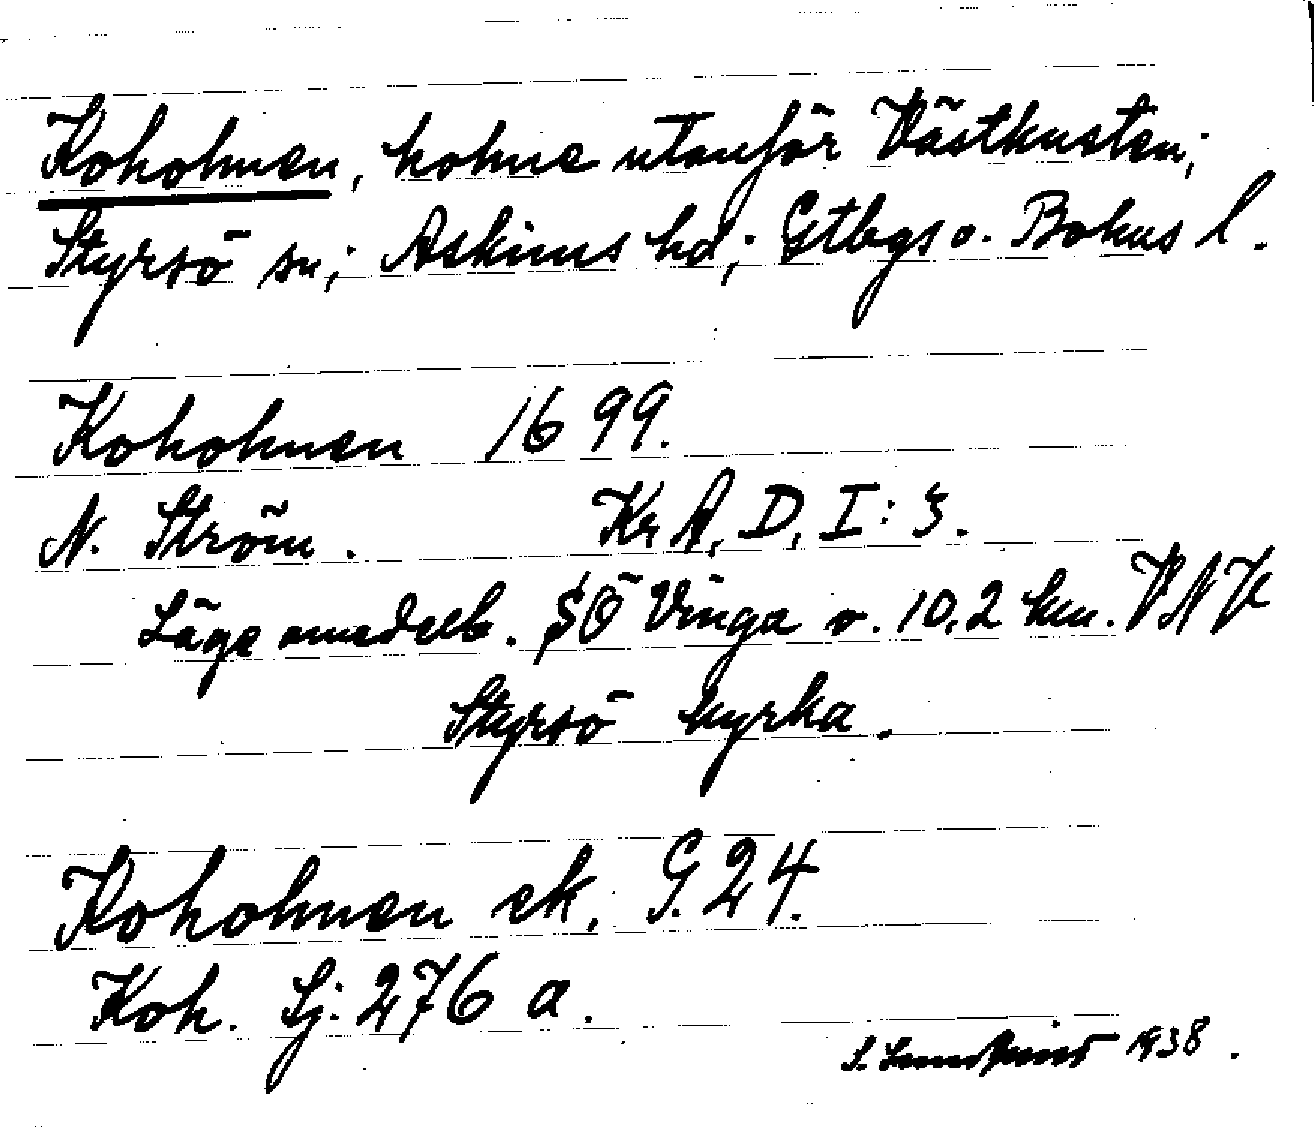 Koholmen, holme utanför Västkusten;
Styrsö sn; Askims hd; Gtbgs o. Bohus l.
Koholmen 1699.
N. Ström. KrA, D, I: 3.
Läge omedelb. SÖ Vinga o. 10,2 km. VNV
Styrsö kyrka.
Koholmen ek. G. 24.
Koh. Sj: 276 a.
S. 1938.